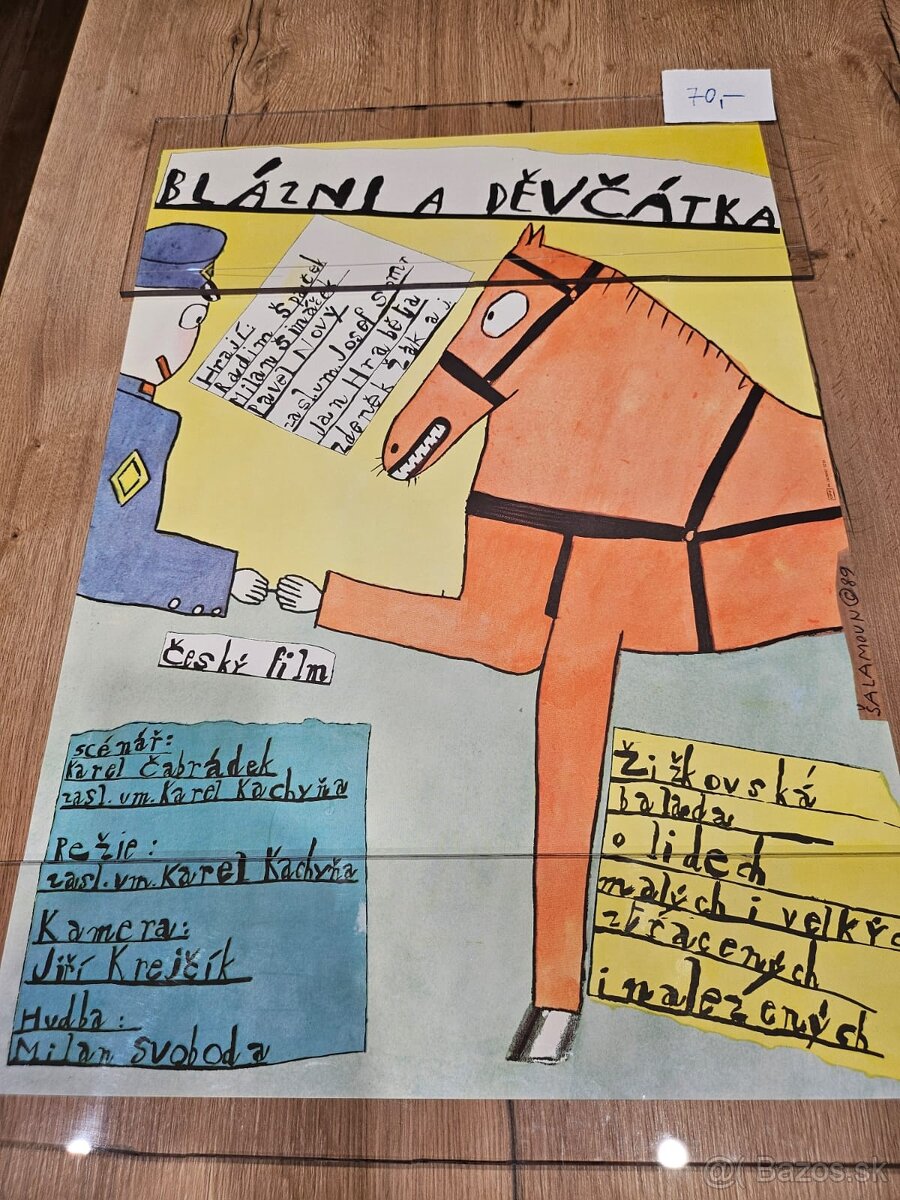 70,-
BLÁZNI A DĚVČÁTKA
Hrají:
Radim Špaček
Milan Šimáček
Pavel Nový
zasl.um. Josef Somr
Jan Hraběta
Zdeněk Žák a j.
český film
scénář:
Karel Čabrádek
zasl.um. Karel Kachyňa
Režie:
zasl.um. Karel Kachyňa
Kamera:
Jiří Krejčík
Hudba:
Milan Svoboda
Žižkovská
balada
o lidech
malých i velkýc
ztracených
i nalezených
ŠALAMOUN©89
@ Bazos.sk